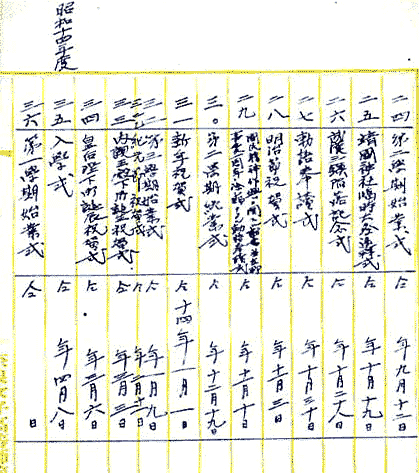 二四 第二學期始業式 仝 年九月十二日
二五 靖國神社臨時大祭遥拝式 仝 年十月十九日
二六 武漢三鎮陥落記念式 仝 年十月二十八日
二七 勅語奉讀式 仝 年十月三十日
二八 明治節祝賀式 仝 年十一月三日
二九 國民精神作興ニ関スル 仝 年十一月十日
三〇 第二學期終業式 仝 年十二月十九日
三一 新年祝賀式 仝 十四年一月一日
三二 第三學期始業式 仝 年一月九日
紀元節祝賀式 仝 年二月十一日
三三 内親王殿下御誕辰祝賀式 仝 年三月三日
三四 皇后陛下御誕辰祝賀式 仝 年三月六日
昭和十四年度
三五 入學式 仝 年四月八日
三六 第一學期始業式 仝 日